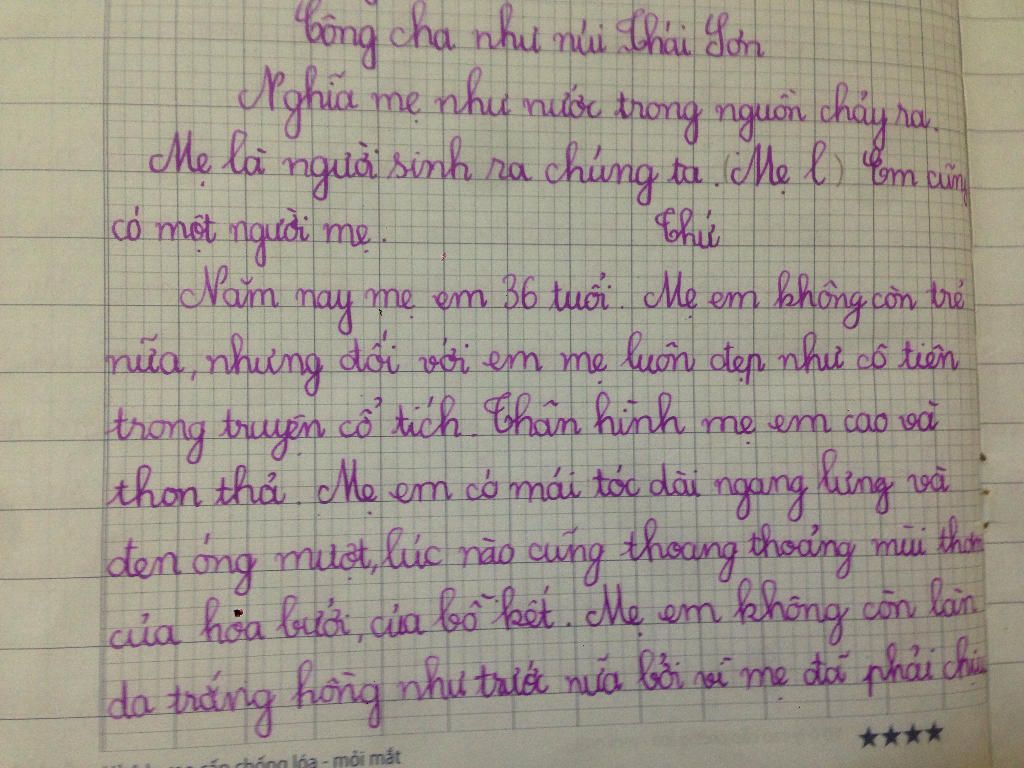 Công cha như núi Thái Sơn
Nghĩa mẹ như nước trong nguồn chảy ra.
Mẹ là người sinh ra chúng ta. (Mẹ l) Em cũng
có một người mẹ. Thứ
Năm nay mẹ em 36 tuổi. Mẹ em không còn trẻ
nữa, nhưng đối với em mẹ luôn đẹp như cô tiên
trong truyện cổ tích. Thân hình mẹ em cao và
thon thả. Mẹ em có mái tóc dài ngang lưng và
đen óng mượt, lúc nào cũng thoang thoảng mùi thơm
của hoa bưởi, của bồ kết. Mẹ em không còn làn
da trắng hồng như trước nữa bởi vì mẹ đã phải chịu
chống lóa - mỏi mắt